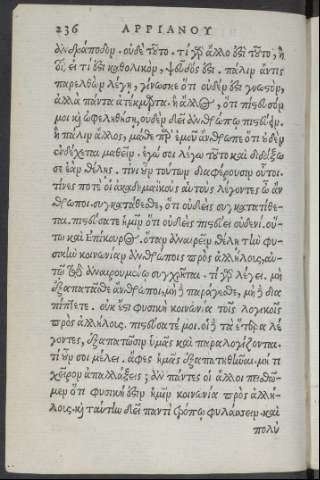 236 ΑΡΡΙΑΝΟΥ
ἀνδράποδον. οὐδὲ τοῦτο. τί γὰρ ἄλλο ἐστὶ τοῦτο, ἢ
ὅτι, εἴ τι ἐστὶ καθολικὸν, ψεῦδός ἐστι. πάλιν ἄν τις
παρελθὼν λέγῃ, γίνωσκε ὅτι οὐδέν ἐστι γνωστὸν,
ἀλλὰ πάντα ἀτέκμαρτα. ἢ ἄλλος, ὅτι πίστευσόν
μοι καὶ ὠφεληθήσῃ, οὐδὲν δεῖ ἀνθρώπῳ πιστεύειν.
ἢ πάλιν ἄλλος, μάθε παρ' ἐμοῦ ἄνθρωπε ὅτι οὐδὲν
ἐνδέχεται μαθεῖν. ἐγώ σοι λέγω τοῦτο καὶ διδάξω
σε ἐὰν θέλῃς. τίνι οὖν τούτων διαφέρουσιν οὗτοι.
τίνες ποτὲ οἱ ἀκαδημαϊκοὺς αὑτοὺς λέγοντες ὦ ἄν
θρωποι, συγκατάθεσθε ὅτι οὐδεὶς συγκατατίθε-
ται. πιστεύσατε ἡμῖν ὅτι οὐδεὶς πιστεύει οὐδενί. οὕ-
τω καὶ ἐπίκουρος. ὅταν ἀναιρεῖν θέλῃ τὴν φυ-
σικὴν κοινωνίαν ἀνθρώποις πρὸς ἀλλήλους, αὐ-
τῷ τῷ ἀναιρουμένῳ συγχρῆται. τί γὰρ λέγει. μὴ
ἐξαπατᾶσθε ἄνθρωποι, μὴ δὲ παράγεσθε, μὴ δὲ δια
πίπτετε. οὐκ ἔστι φυσικὴ κοινωνία τοῖς λογικοῖς
πρὸς ἀλλήλους. πιστεύσατέ μοι. οἱ δὲ τὰ ἕτερα λέ
γοντες, ἐξαπατῶσιν ὑμᾶς καὶ παραλογίζονται.
τί οὖν σοι μέλει. ἄφες ἡμᾶς ἐξαπατηθῆναι. μή τι
χεῖρον ἀπαλλάξεις; ἂν πάντες οἱ ἄλλοι πεισθῶ-
μεν ὅτι φυσική ἐστιν ἡμῖν κοινωνία πρὸς ἀλλή-
λους. καὶ ταύτην δεῖ παντὶ τρόπῳ φυλάσσειν. καὶ
πολὺ